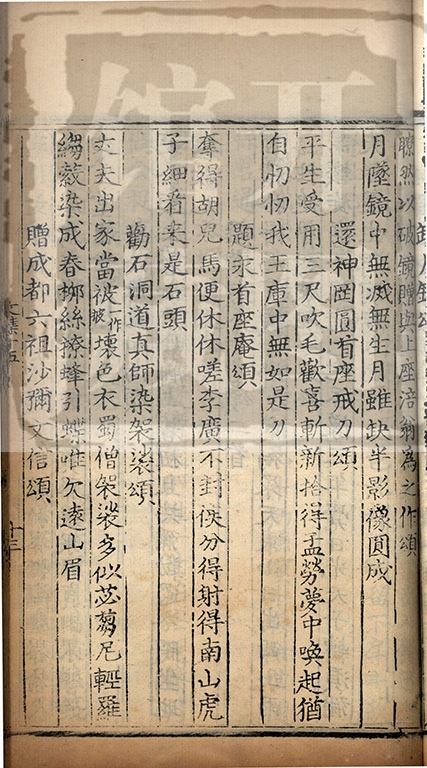 瞭然以破鏡贈與上座涪翁為之作頌
月墮鏡中無滅無生月雖缺半影像圓成
還神岡圓首座戒刀頌
平生受用三尺吹毛歡喜斬新拾得孟勞夢中喚起猶
自忉忉我王庫中無如是刀
題求首座庵頌
奪得胡兒馬便休休嗟李廣不封侯分得射得南山虎
子細看来是石頭
勸石洞道真師染袈裟頌
丈夫出家當被一作披壞色衣蜀僧袈裟多似苾蒭尼輕羅
縐縠染成春栁絲撩蜂引蝶唯欠遠山眉
贈成都六祖沙彌文信頌
集十五
十三